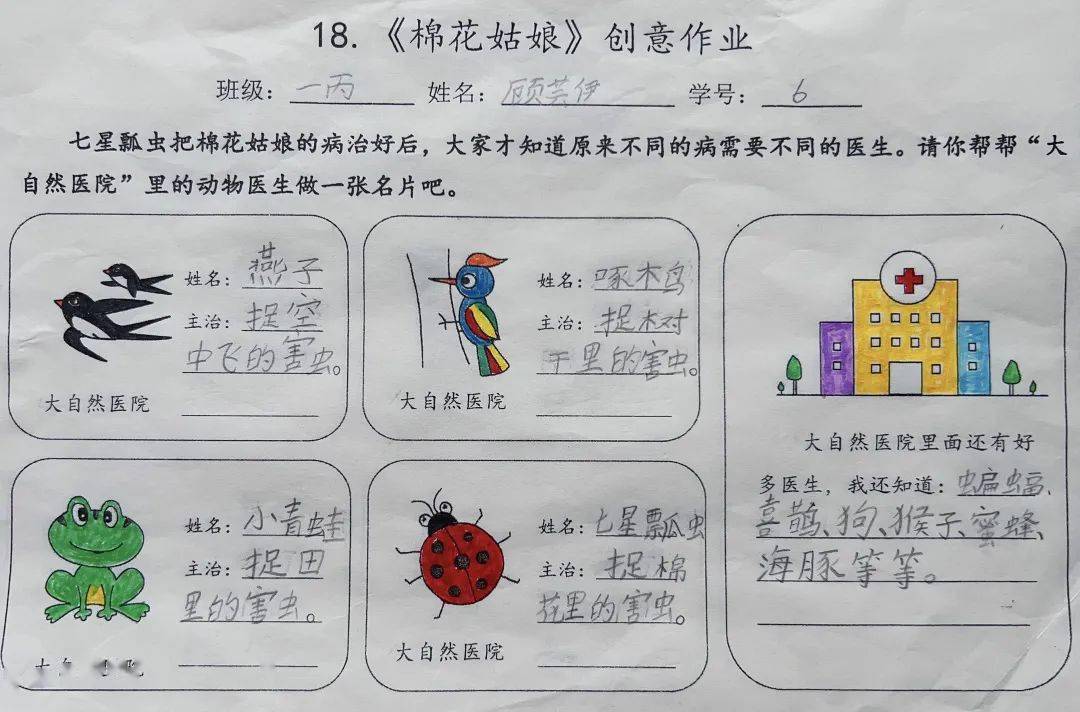 18.《棉花姑娘》创意作业
班级：一丙 姓名：顾芸伊 学号：6
七星瓢虫把棉花姑娘的病治好后，大家才知道原来不同的病需要不同的医生。请你帮帮“大
自然医院”里的动物医生做一张名片吧。
姓名：燕子
主治：捉空
中飞的害虫。
大自然医院
姓名：啄木鸟
主治：捉树
干里的害虫。
大自然医院
姓名：小青蛙
主治：捉田
里的害虫。
姓名：七星瓢虫
主治：捉棉
花里的害虫。
大自然医院
大自然医院里面还有好
多医生，我还知道：蝙蝠、
喜鹊、狗、猴子、蜜蜂、
海豚等等。